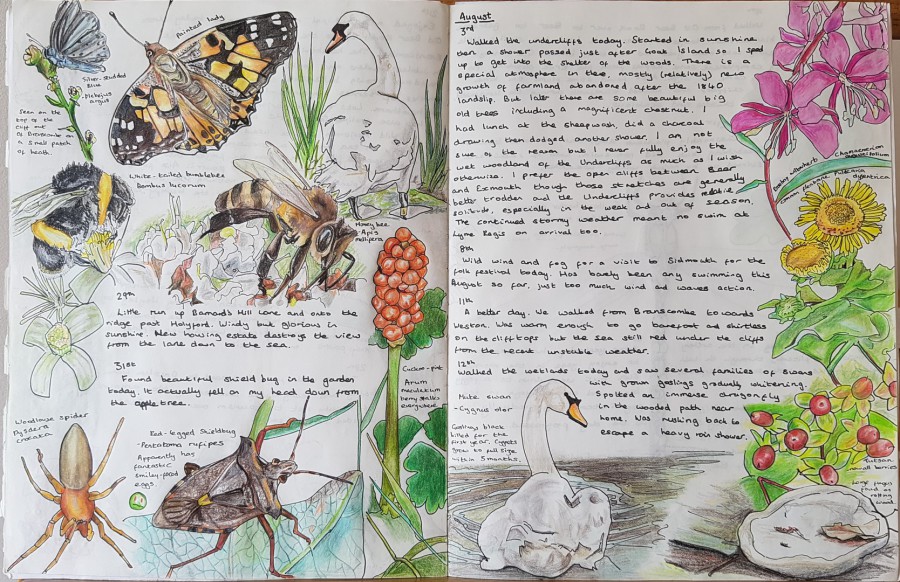 Painted lady
Silver-studded
Blue
-Plebejus
argus
Seen on the
top of the
cliff out
of Branscombe on
a small patch
of heath.
White-tailed bumblebee
Bombus lucorum
Honey bee
- Apis
mellifera
29th
Little run up Barnard's Hill Lane and onto the
ridge past Holyford. Windy but glorious in
sunshine. New housing estate destroys the view
from the lane down to the sea.
31st
Found beautiful shield bug in the garden
today. It actually fell on my head down from
the apple tree.
Cuckoo-pint
Arum
maculatum
berry stalks
everywhere
Woodlouse spider
Dysdera
crocata
Red-legged Shieldbug
-Pentatoma rufipes
Apparently has
fantastic
smiley-faced
eggs.
August
3rd
Walked the undercliffs today. Started in sunshine
then a shower passed just after Goat Island so I sped
up to get into the shelter of the woods. There is a
special atmosphere in there, mostly (relatively) new
growth of farmland abandoned after the 1840
landslip. But later there are some beautiful big
old trees including a magnificent chestnut. I
had lunch at the sheepwash, did a charcoal
drawing then dodged another shower. I am not
sure of the reason but I never fully enjoy the
wet woodland of the Undercliffs as much as I wish
otherwise. I prefer the open cliffs between Beer
and Exmouth though those stretches are generally
better trodden and the Undercliffs provides reliable
solitude, especially in the week and out of season.
The continued stormy weather meant no swim at
Lyme Regis on arrival too.
Rosebay willowherb
Chamaenerion
angustifolium
Common fleabane Pulicaria
dysenterica
8th
Wild wind and fog for a visit to Sidmouth for the
folk festival today. Has barely been any swimming this
August so far, just too much wind and waves action.
11th
A better day. We walked from Branscombe towards
Weston. Was warm enough to go barefoot and shirtless
on the clifftops but the sea still red under the cliffs
from the recent unstable weather.
12th
Walked the wetlands today and saw several families of swans
with grown goslings gradually whitening.
Spotted an immense dragonfly
in the wooded path near
home. Was rushing back to
escape a heavy rain shower.
Mute swan
-Cygnus olor
Goslings black
billed for the
first year. Cygnets
grow to full size
within 5 months.
Tutsan
small berries
Large fungus
found on
rotting
wood.